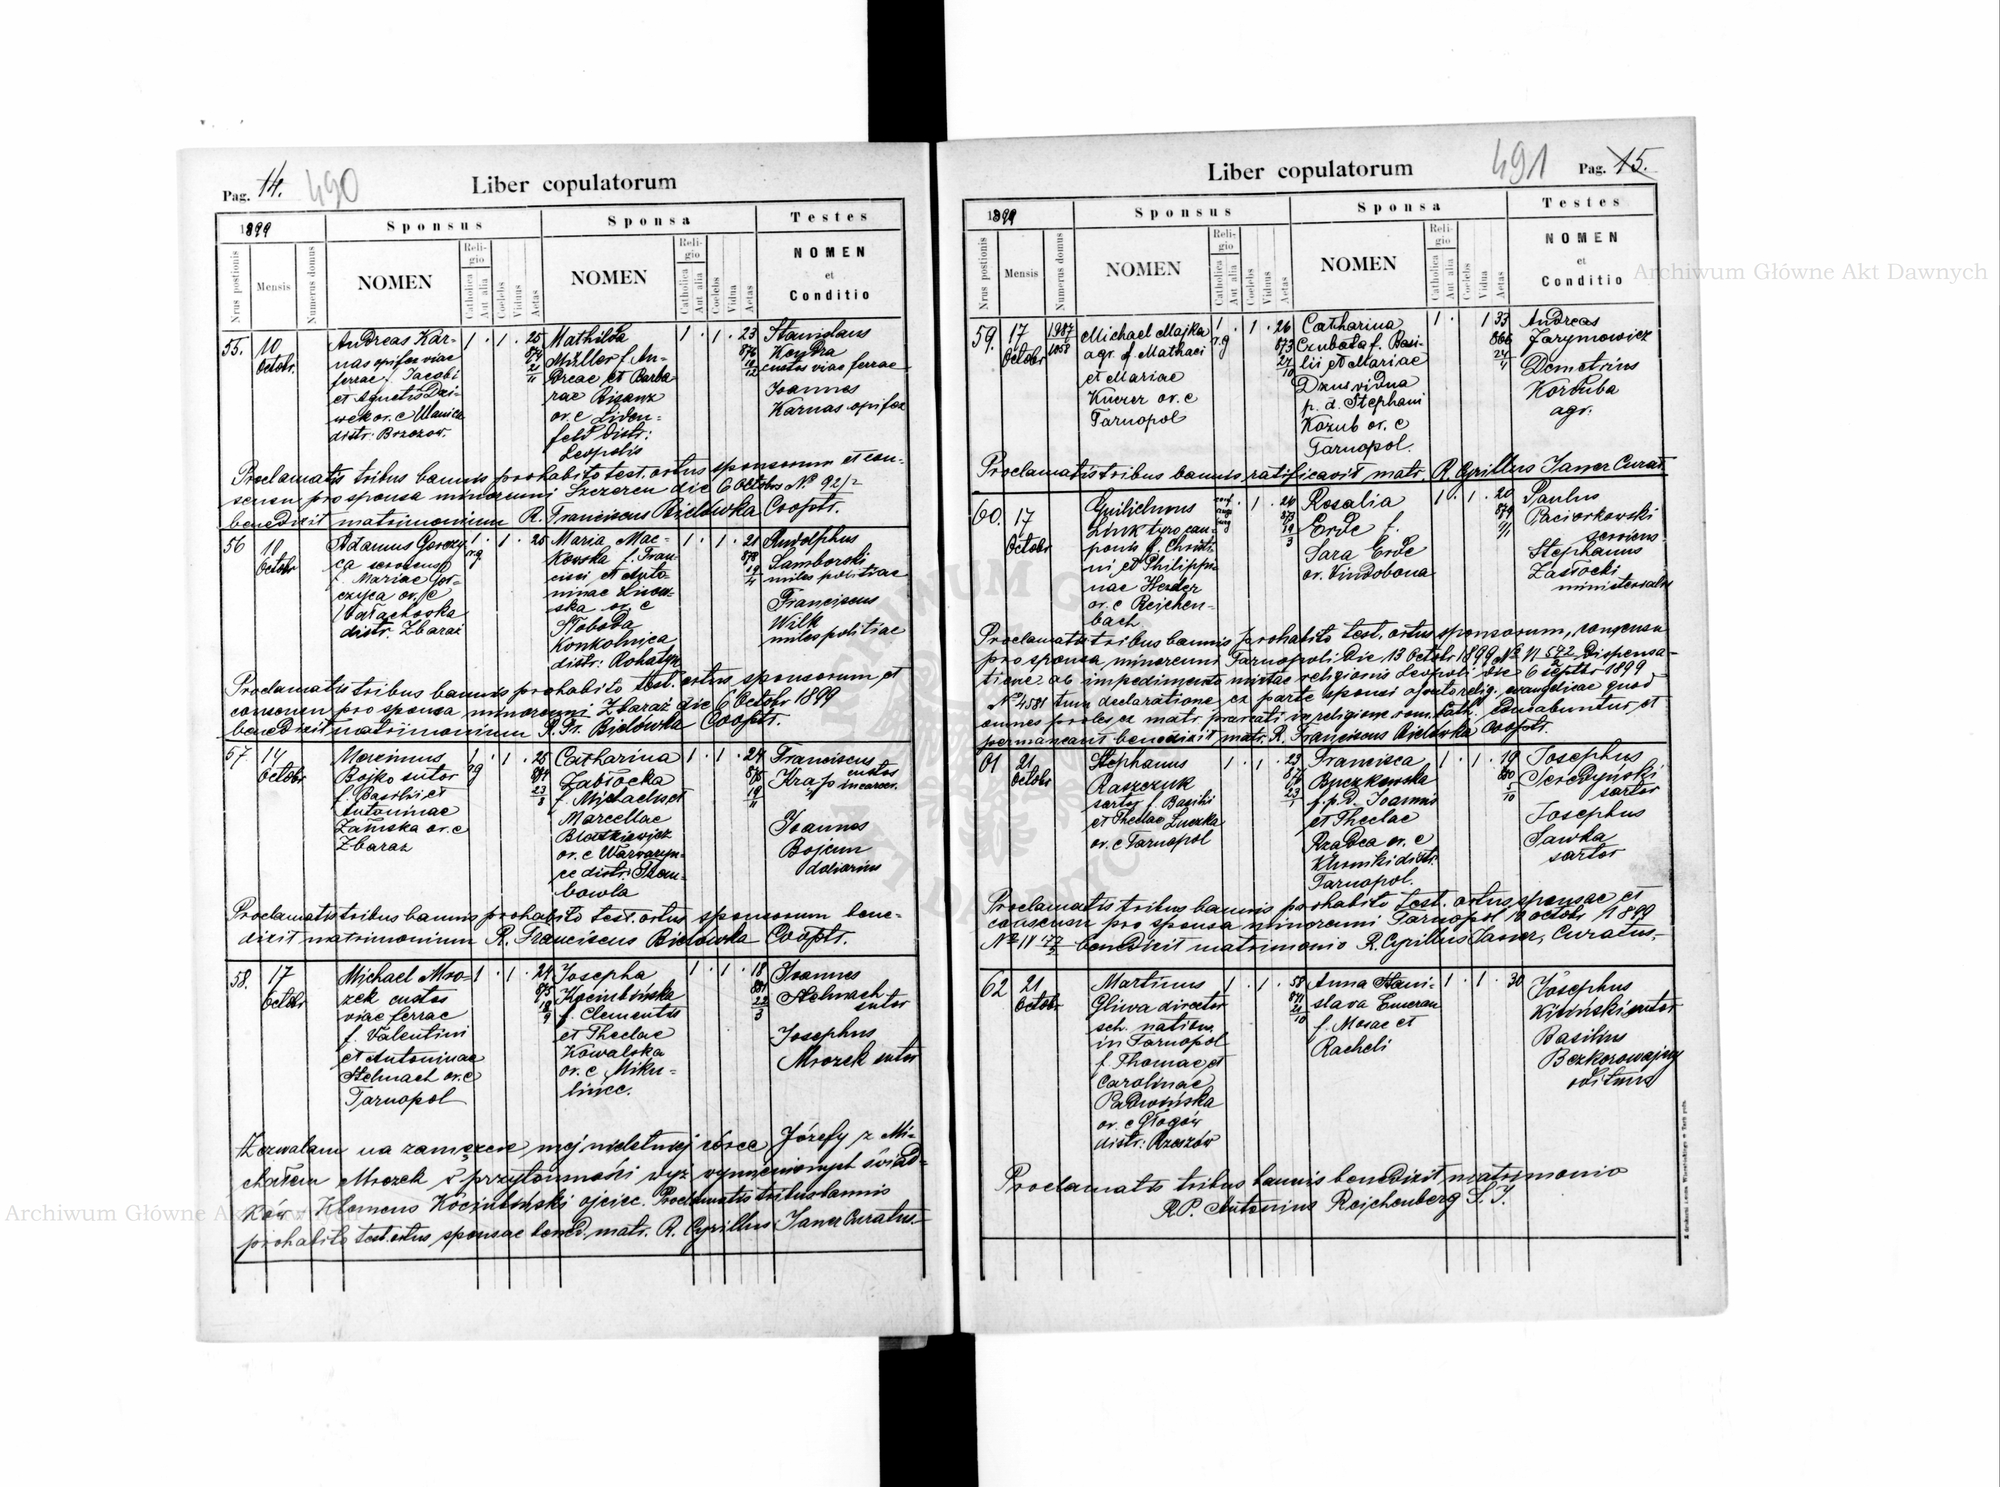 Pag. 14. 490
Liber copulatorum
1899
Sponsus
Sponsa
Testes
Nrus postionis
Mensis
Numerus domus
NOMEN
Religio
Catholica
Aut alia
Coelebs
Viduus
Aetas
NOMEN
Religio
Catholica
Aut alia
Coelebs
Vidua
Aetas
NOMEN
et
Conditio
55. 10 Octobr.
Andreas Kar-
nas opifex viae
ferrae f. Jacobi
et Agnetis Dzi-
wek or. e Ulanica
distr: Brzozow.
1 . 1 . 25
874
21
11
Mathilda
Müller f. An-
dreae et Barba
rae Rizanz
or. e Linden-
feld distr:
Leopolis
1 . 1 . 23
876
10
12
Stanislaus
Kondra
custos viae ferrae
Joannes
Karnas opifex
Proclamatis tribus bannis prohabito test. ortus sponsorum et con-
sensu pro sponsa minorenni Szczerzec die 6 Octobr No 92/2
benedixit matrimonium R. Franciscus Bielówka Coopt.
56 10 Octobr
Adamus Gorczy
ca
f. Mariae Gor-
czyca or. e
Wałachówka
distr. Zbaraż
1 . 1 . 25
rg
Maria Mac-
kowska f. Fran-
cisci et Anto-
ninae
ska or. e
Słoboda
Konkolnica
distr: Rohatyn
1 . 1 . 21
878
19
4
Rudolphus
Samborski
miles politiae
Franciscus
Wilk
miles politiae
Proclamatis tribus bannis prohabito test. ortus sponsorum et
consensu pro sponsa minorenni Zbaraż die 6 Octobr 1899
benedixit matrimonium R. Fr. Bielówka Coopt.
57 14 Octobr
Maximus
Bojko sutor
f. Basilii et
Antoninae
Zańska or. e
Zbaraz
1 . 1 . 25
rg 874
23
8
Catharina
Zabłocka
f. Michaelis et
Marcellae
Błaszkiewicz
or. e Warwaryn-
ce distr: Trem-
bowla
1 . 1 . 24
875
19
11
Franciscus
Krajo custos
incarcer.
Joannes
Bojcun
doliarius
Proclamatis tribus bannis prohabito test. ortus sponsorum bene-
dixit matrimonium R. Franciscus Bielówka Coopt.
58. 17 Octobr
Michael Mro-
zek custos
viae ferrae
f. Valentini
et Antoninae
Stelmach or. e
Tarnopol
1 . 1 . 24
875
18
9
Josepha
Kociubińska
f. Clementis
et Theclae
Kowalska
or. e Miku-
lince.
1 . 1 . 18
881
22
3
Joannes
Stelmach
sutor
Josephus
Mrozek sutor
Zezwalam na zamęście mej nieletniej córce Józefy z Mi-
chałem Mrozek w przytomności wyż wymienionych świad-
ków - Klemens Kociubiński ojciec. Proclamatis tribus bannis
prohabito test. ortus sponsae bened. matr. R. Cyrillus Janer Curatus.
Liber copulatorum
491 Pag. 15.
1899
Sponsus
Sponsa
Testes
Nrus postionis
Mensis
Numerus domus
NOMEN
Religio
Catholica
Aut alia
Coelebs
Viduus
Aetas
NOMEN
Religio
Catholica
Aut alia
Coelebs
Vidua
Aetas
NOMEN
et
Conditio
59. 17 Octobr
1987
1058
Michael Majka
agr. f. Mathaei
et Mariae
Kuczer or. e
Tarnopol
1 . 1 . 26
rg 873
27
10
Catharina
Czubata f. Basi-
lii et Mariae
Dzus vidua
p. d. Stephani
Kozub or. e
Tarnopol.
1 . 1 33
866
24
4
Andreas
Jarymowicz
Demetrius
Korduba
agr.
Proclamatis tribus bannis ratificavit matr. R. Cyrillus Janer Curat.
60. 17 Octobr
Guilielmus
Link tyro cau-
ponis f. Christi
ni et Philippi
nae Herder
or. e Reichen-
bach
1 . 26
873
19
3
Rosalia
Erde f.
Sara Erde
or. Vindobona
1 . 1 . 20
879
Paulus
Paciorkowski
serviens
Stephanus
Zasłocki
ministerialis
Proclamatis tribus bannis, prohabito test. ortus sponsorum, consensu
pro sponsa minorenni Tarnopoli die 13 Octobr 1899 No VI 592/2 Dispensa-
tione ab impedimento mixtae religionis Leopoli die 6 septbr 1899
No 4581 tum declaratione ex parte sponsi asecto relig. evangelicae quod
omnes proles ex matr. procreati in religione rom. Cath. educabuntur et
permaneant benedixit matr. R. Franciscus Bielówka Coopt.
61 21 Octobr
Stephanus
Raszczuk
sartor f. Basilii
et Theclae Luczka
or. e Tarnopol
1 . 1 . 23
876
23
1
Francisca
Buczkowska
f. p. d. Joannis
et Theclae
Rzabca or. e
distr.
Tarnopol.
1 . 1 . 19
880
5
10
Josephus
sartor
Josephus
Sawka
sartor
Proclamatis tribus bannis prohabito test. ortus sponsae et
consensu pro sponsa minorenni Tarnopol 10 octobr 1899
No IV benedixit matrimonio R. Cyrillus Janer, Curatus.
62 21 Octobr
Martinus
Gliwa director
sch. nation.
in Tarnopol
f. Thomae et
Carolinae
Padwińska
or. e Głogów
distr: Rzeszów
1 . 1 . 58
841
21
10
Anna Stani-
slava Emerau
f. Mosae et
Racheli
1 . 1 . 30
Josephus
Kitiński sutor
Basilius
Bezkorowajny
Proclamatis tribus bannis benedixit matrimonio
RP. Antonius Reichenberg S. J.
Archiwum Główne Akt Dawnych
Archiwum Główne Akt Dawnych